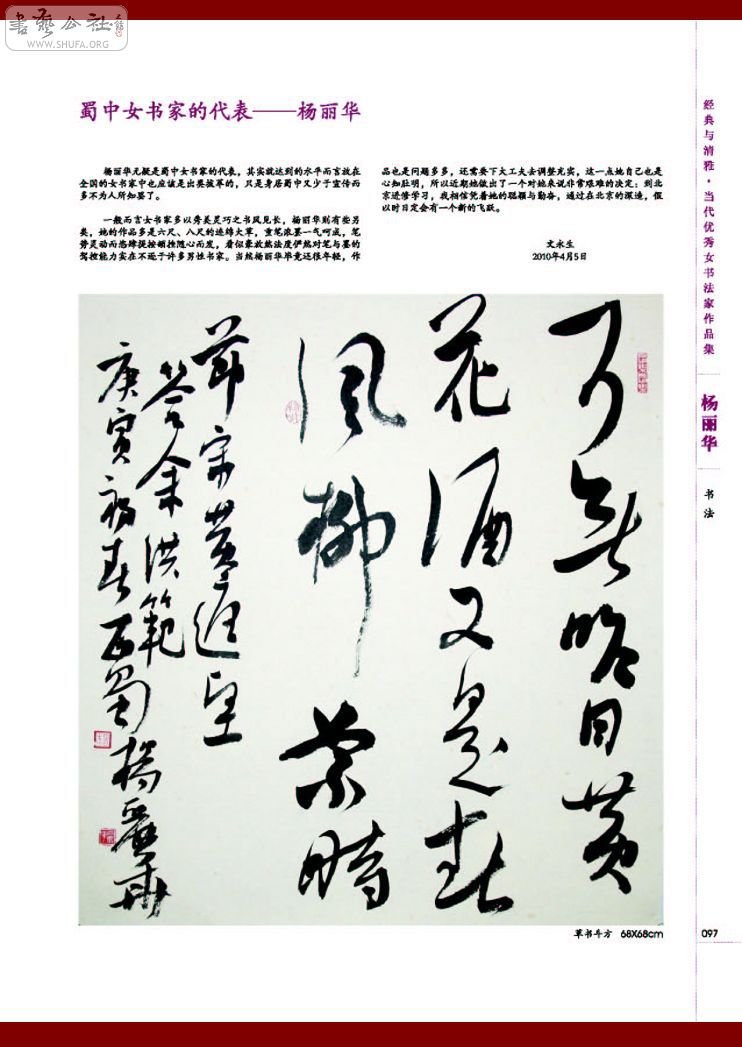 書藝公社
WWW.SHUFA.ORG
蜀中女书家的代表——杨丽华
杨丽华无疑是蜀中女书家的代表，其实就达到的水平而言放在
全国的女书家中也应该是出类拔萃的，只是身居蜀中又少于宣传而
多不为人所知罢了。
一般而言女书家多以秀美灵巧之书风见长，杨丽华则有些另
类，她的作品多是六尺、八尺的连绵大草，重笔浓墨一气呵成，笔
势灵动而恣肆提按顿挫随心而发，看似豪放然法度俨然对笔与墨的
驾控能力实在不逊于许多男性书家。当然杨丽华毕竟还很年轻，作
品也是问题多多，还需要下大工夫去调整充实，这一点她自己也是
心知肚明，所以近期她做出了一个对她来说非常艰难的决定：到北
京进修学习，我相信凭着她的聪颖与勤奋，通过在北京的深造，假
以时日定会有一个新的飞跃。
文永生
2010年4月5日
可無昨日黄
花酒又是春
風柳絮時
節宋黄庭堅
答余洪範
庚寅初春西蜀楊麗華
草书斗方 68X68cm
经典与清雅·当代优秀女书法家作品集
杨丽华
书法
097